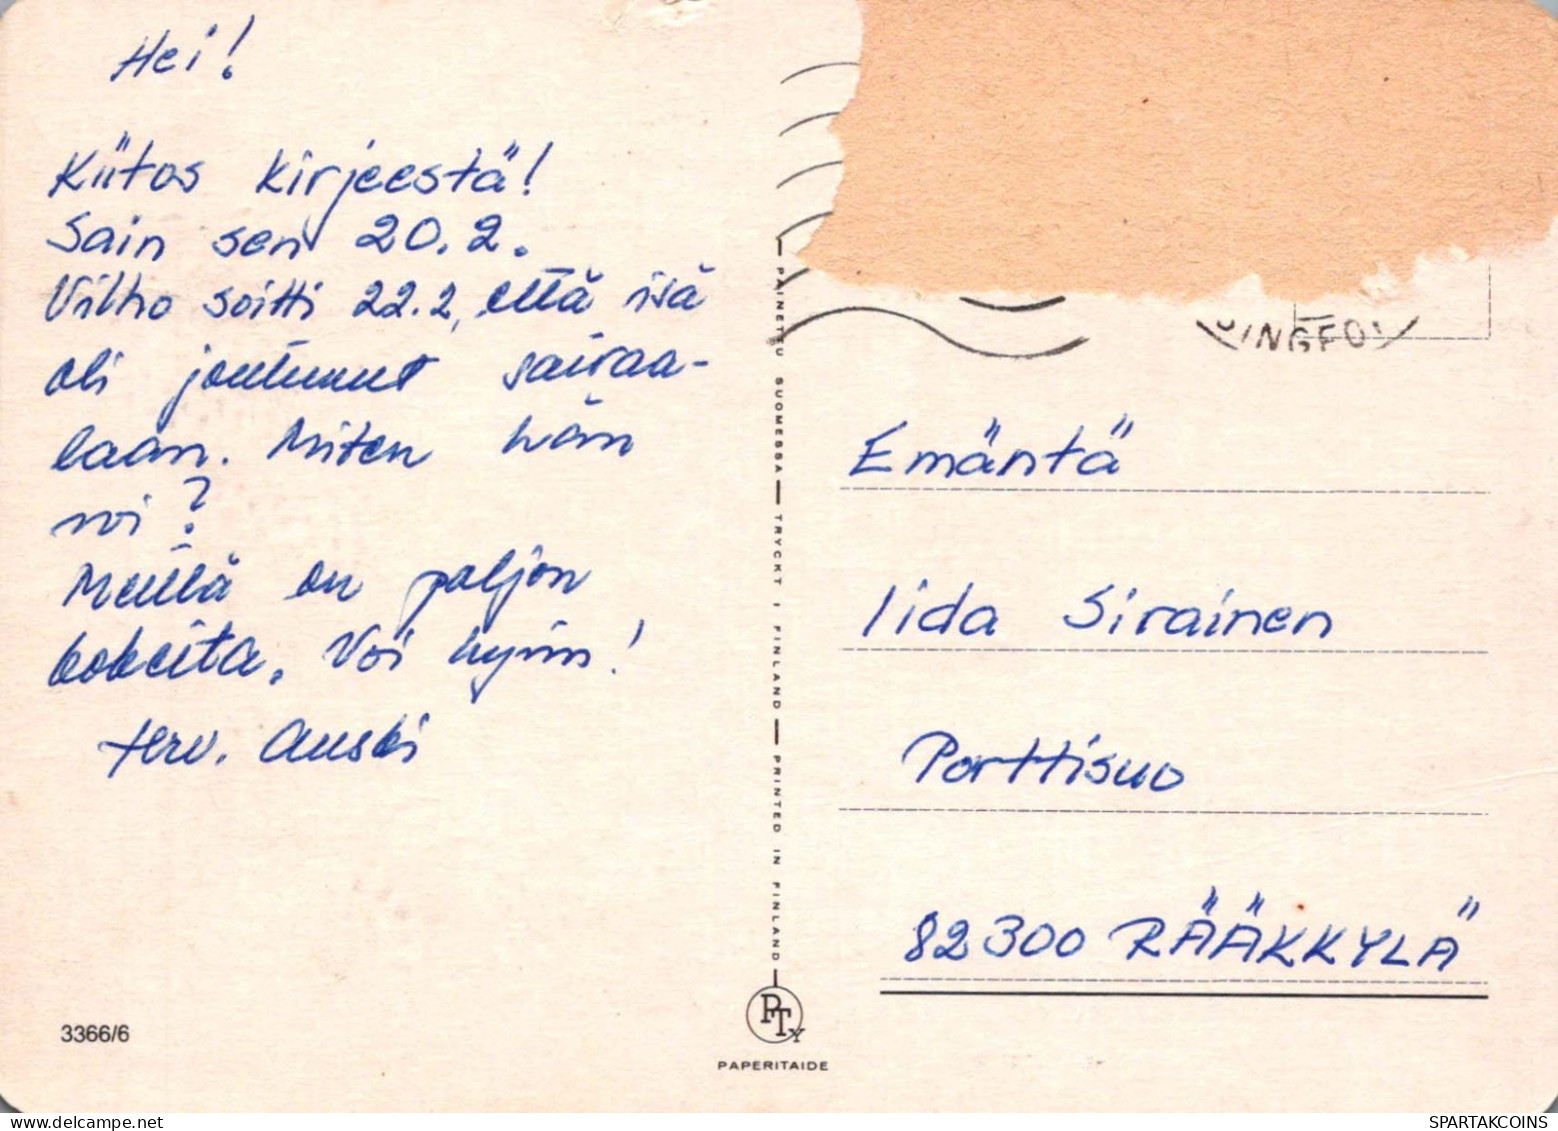 Hei!
Kiitos kirjeestä!
Sain sen 20.2.
Vilho soitti 22.2, että isä
oli joutunut sairaa-
laan. Miten hän
voi?
Meillä on paljon
kokeita. Voi hyvin!
terv. Auski
3366/6
PAINETTU SUOMESSA — TRYCKT I FINLAND — PRINTED IN FINLAND
PTY
PAPERITAIDE
INGFO
Emäntä
Iida Sirainen
Porttisuo
82300 RÄÄKKYLÄ
SPARTAKCOINS
delcampe.net